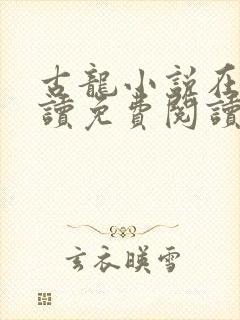 古龍小說在
讀免費閱讀
玄衣暎雪